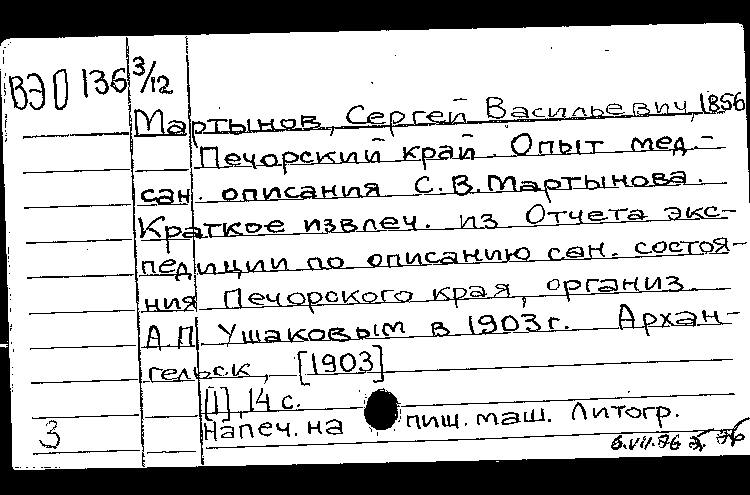 ВЭО 136 3/12
Мартынов, Сергей Васильевич, 1856
Печорский край. Опыт мед.-
сан. описания С.В. Мартынова.
Краткое извлеч. из Отчета экс-
педиции по описанию сан. состоя-
ния Печорского края, организ.
А.П. Ушаковым в 1903 г. Архан-
гельск, [1903]
[1], 14 с.
Напеч. на пиш. маш. Литогр.
3